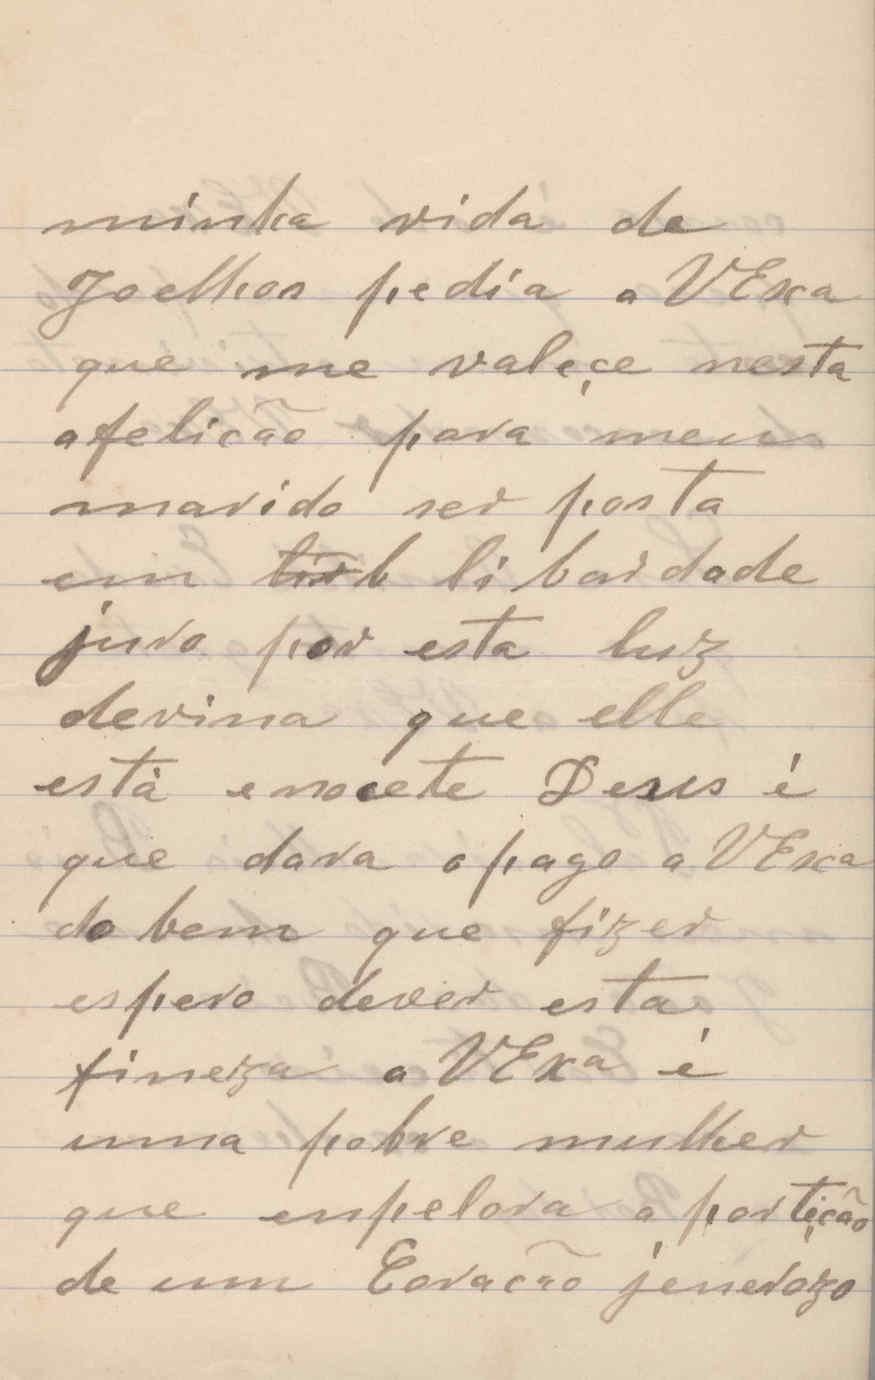 minha vida de
Joelhos pedia a VExa
que me valeçe nesta
afelicão para meu
marido ser posta
em tirb li bardade
juro por esta luz
devina que elle
està enocete Desus é
que dara o pago a VExa
do bem que fizer
espero dever esta
fineza a VExa é
uma pobre mulher
que enpelora a portição
de um Coracão jenerozo